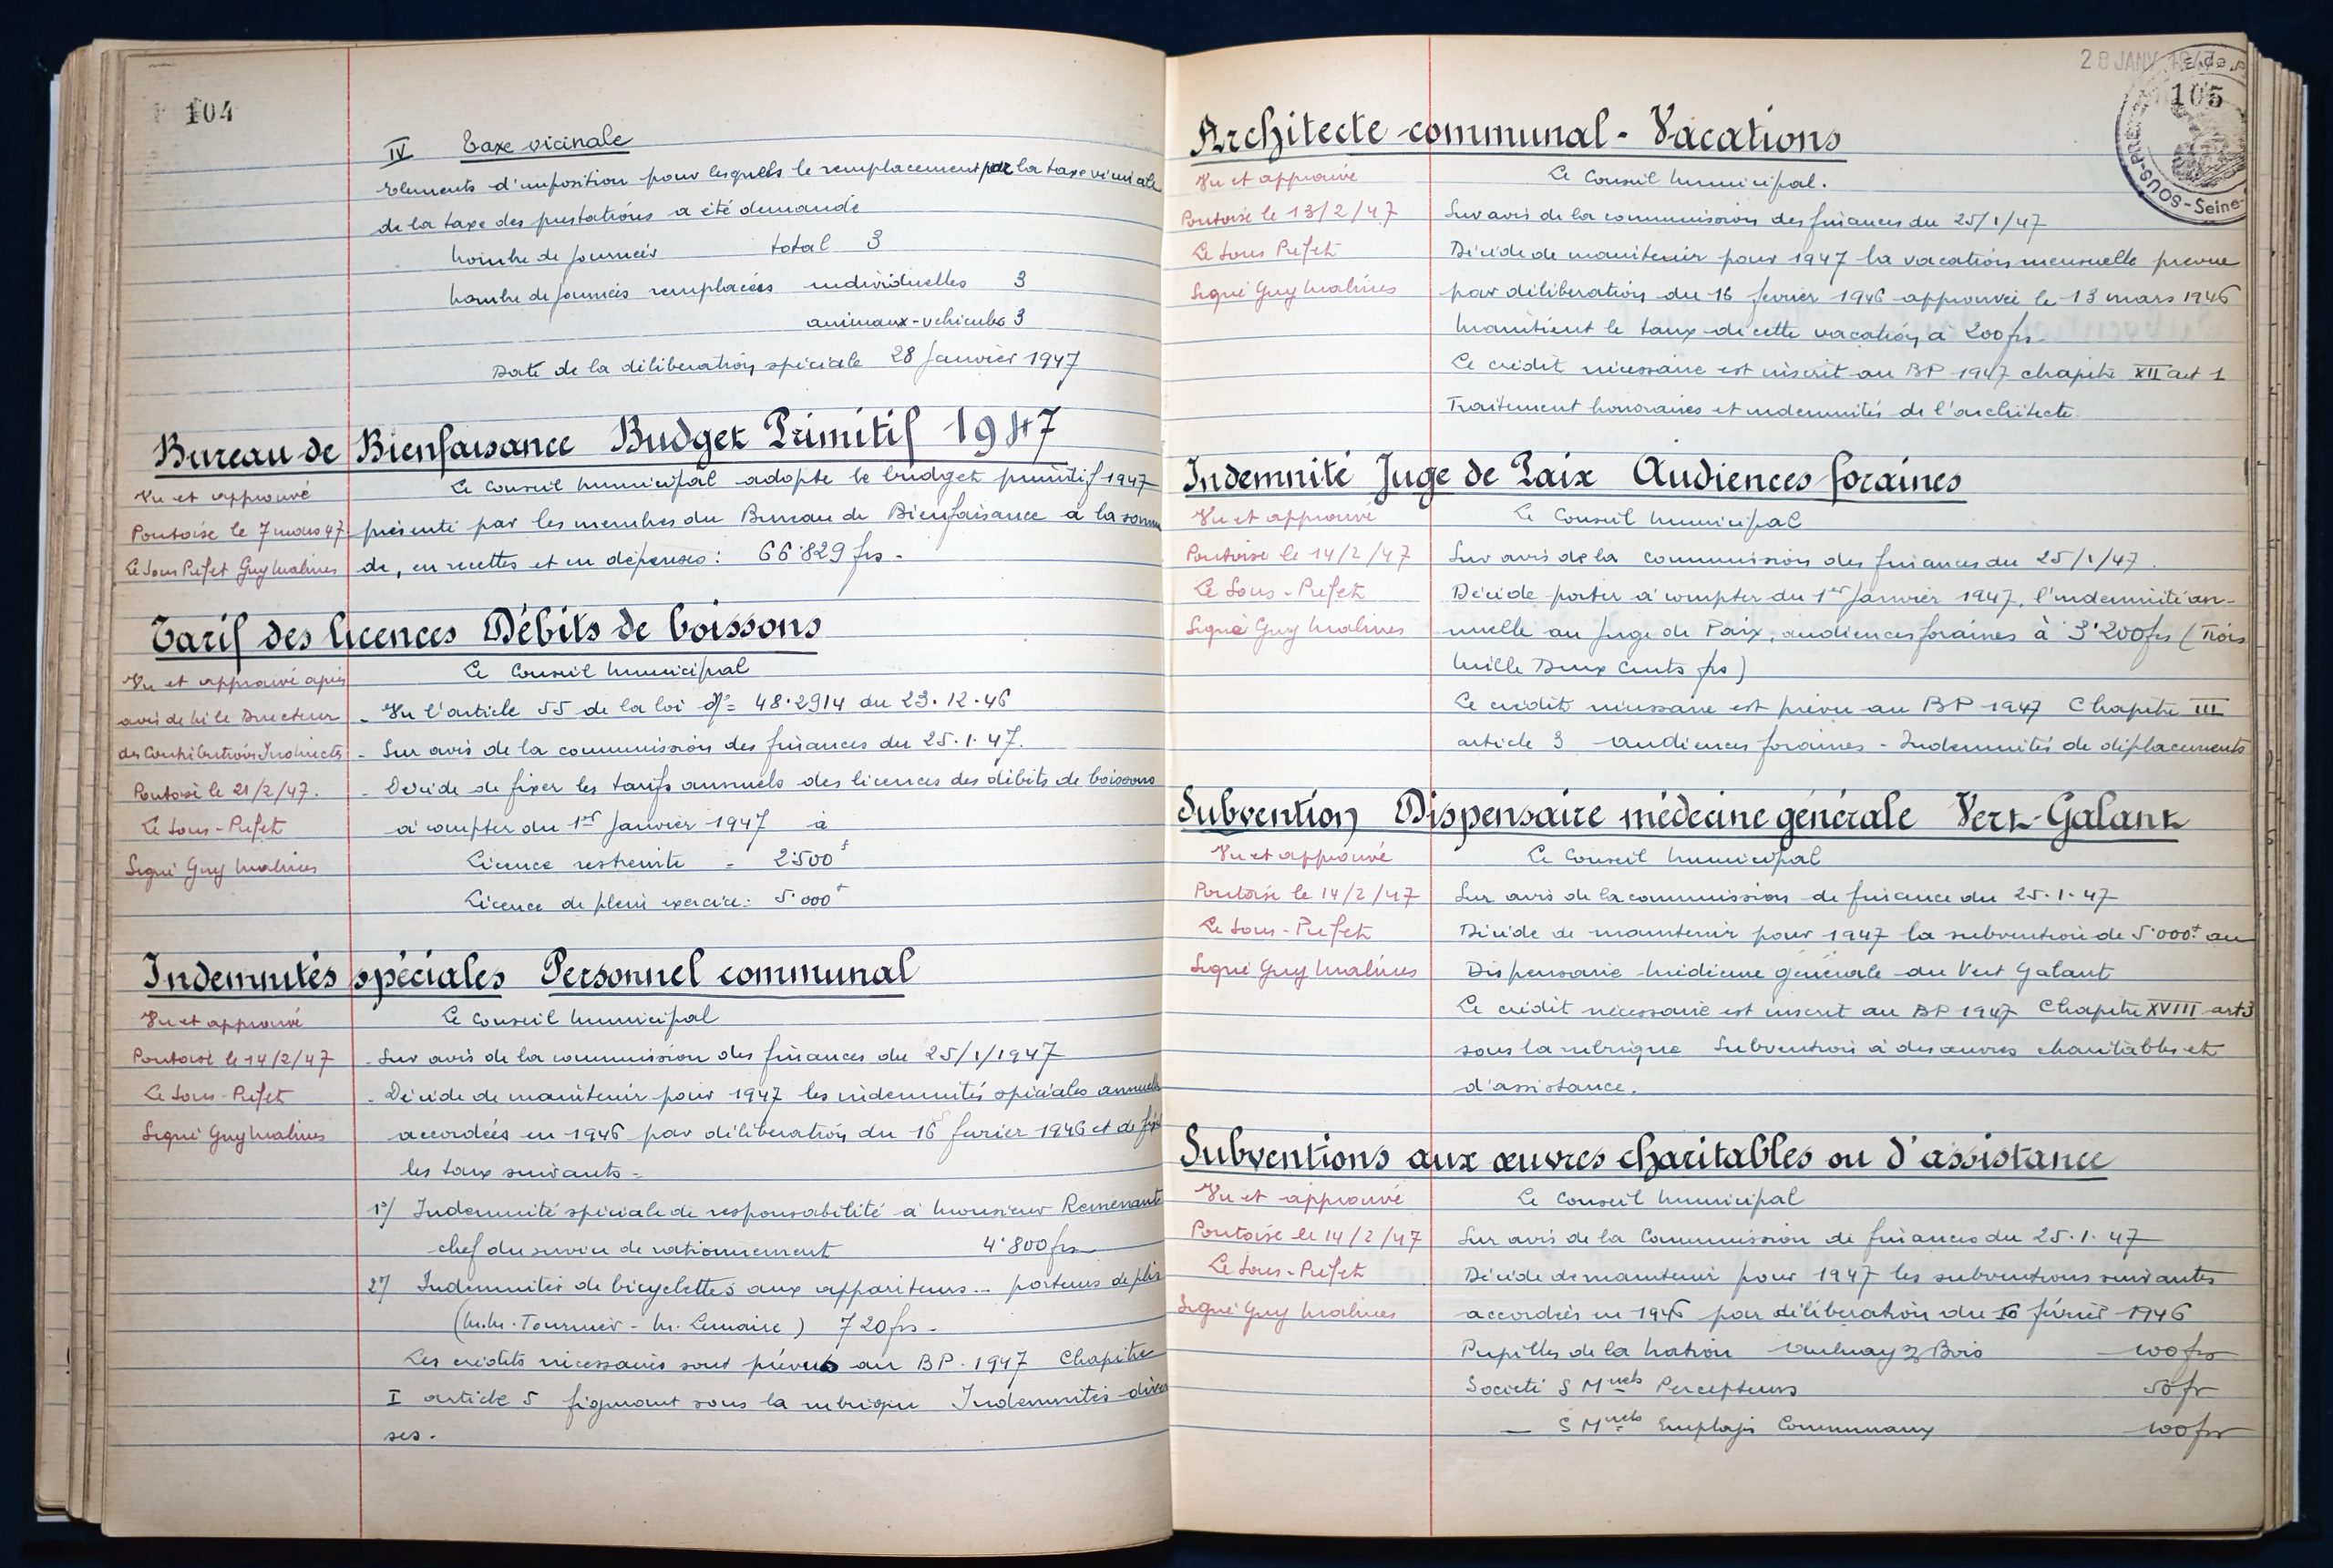 104
IV Taxe vicinale
Elements d'imposition pour lesquels le remplacement par la taxe vicinale
de la taxe des prestations a été demandé
Nombre de journées total 3
Nombre de journées remplacées individuelles 3
animaux-vehicules 3
Date de la déliberation spéciale 28 Janvier 1947
Bureau de Bienfaisance Budget Primitif 1947
Vu et approuvé
Pontoise le 7 mars 47
Le Sous Prefet Guy Malines
Le Conseil Municipal adopte le budget primitif 1947
présenté par les membres du Bureau de Bienfaisance à la somme
de, en recettes et en dépenses : 66.829 frs.
Tarif des licences Débits de boissons
Vu et approuvé après
avis de M le Directeur
des Contributions Indirectes
Pontoise le 21/2/47.
Le Sous-Prefet
Signé Guy Malines
Le Conseil Municipal
- Vu l'article 55 de la loi N° 48.2914 du 23.12.46
- Sur avis de la commission des finances du 25.1.47.
- Décide de fixer les tarifs annuels des licences des débits de boissons
à compter du 1er Janvier 1947 à
Licence restreinte = 2.500f
Licence de plein exercice : 5.000f
Indemnités spéciales Personnel communal
Vu et approuvé
Pontoise le 14/2/47
Le Sous-Prefet
Signé Guy Malines
Le Conseil Municipal
- Sur avis de la commission des finances du 25/1/1947
- Décide de maintenir pour 1947 les indemnités spéciales annuelles
accordées en 1946 par déliberation du 16 fevrier 1946 et de fixer
les taux suivants =
1°/ Indemnité spéciale de responsabilité à Monsieur
chef du service de rationnement 4.800 frs
2°/ Indemnités de bicyclettes aux appariteurs - porteurs de plis
(M.M. Tournier - M. Lemaire) 720 frs -
Les crédits nécessaires sont prévus au BP. 1947 Chapitre
I article 5 figurant sous la rubrique Indemnités diver
ses.
28 JANV 1947
105
SOUS-PRÉF
Seine-
Architecte communal - Vacations
Vu et approuvé
Pontoise le 13/2/47
Le Sous Prefet
Signé Guy Malines
Le Conseil Municipal.
Sur avis de la commission des finances du 25/1/47
Décide de maintenir pour 1947 la vacation mensuelle prevue
par déliberation du 16 fevrier 1946 approuvée le 13 mars 1946
Maintient le taux de cette vacation à 200 frs.
Le crédit nécessaire est inscrit au BP 1947 chapitre XII art 1
Traitement honoraires et indemnités de l'architecte.
Indemnité Juge de Paix Audiences foraines
Vu et approuvé
Pontoise le 14/2/47
Le Sous-Prefet
Signé Guy Malines
Le Conseil Municipal
Sur avis de la commission des finances du 25/1/47.
Décide porter à compter du 1er Janvier 1947, l'indemnité an-
nuelle au Juge de Paix, audiences foraines à 3'200 frs (Trois
Mille Deux Cents frs)
Le crédit nécessaire est prévu au BP 1947 Chapitre III
article 3 audiences foraines - Indemnités de déplacements
Subvention Dispensaire médecine générale Vert-Galant
Vu et approuvé
Pontoise le 14/2/47
Le Sous-Prefet
Signé Guy Malines
Le Conseil Municipal
Sur avis de la commission de finance du 25.1.47
Décide de maintenir pour 1947 la subvention de 5'000f au
Dispensaire médecine générale du Vert Galant
Le crédit nécessaire est inscrit au BP 1947 Chapitre XVIII art 3
sous la rubrique Subvention à des œuvres charitables et
d'assistance.
Subventions aux œuvres charitables ou d'assistance
Vu et approuvé
Pontoise le 14/2/47
Le Sous-Prefet
Signé Guy Malines
Le Conseil Municipal
Sur avis de la Commission de finances du 25.1.47
Décide de maintenir pour 1947 les subventions suivantes
accordées en 1946 par déliberation du 16 février 1946
Pupilles de la Nation Aulnay s/ Bois 100 frs
Societé S Muels Percepteurs 50 fr
— S Muels Employés Communaux 100 frs